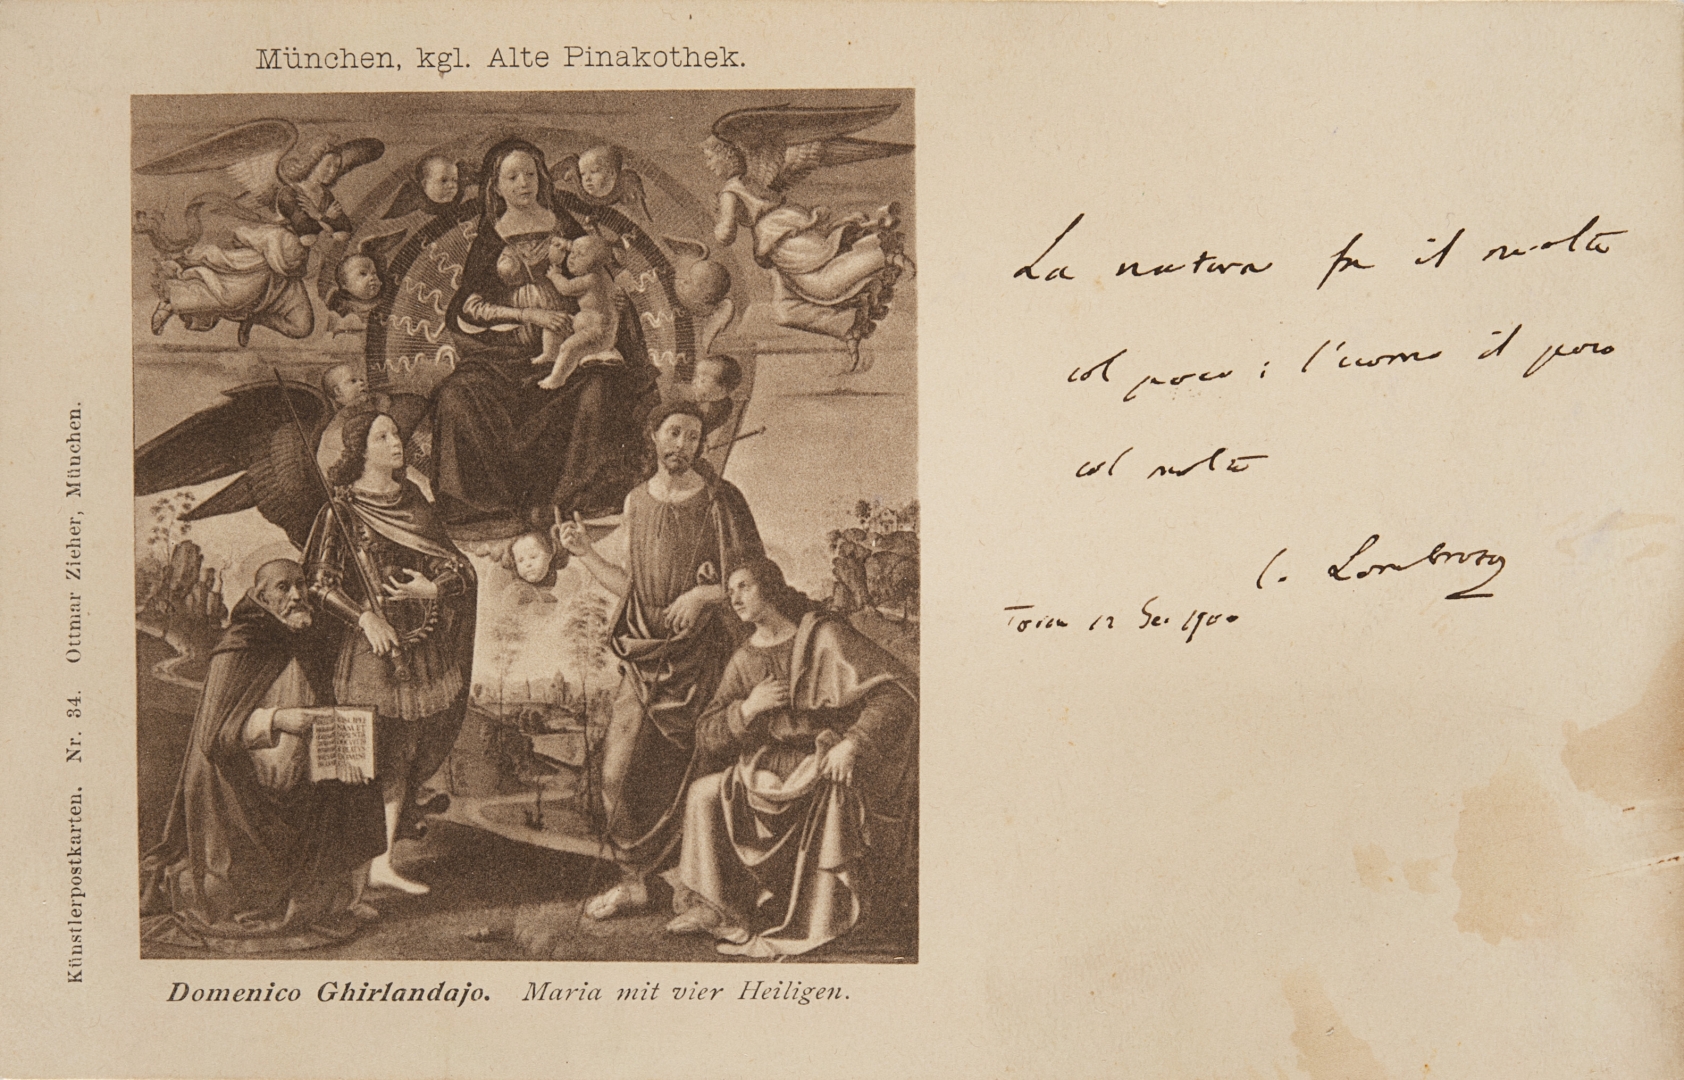 München, kgl. Alte Pinakothek.
Künstlerpostkarten. Nr. 34. Ottmar Zieher, München.
Domenico Ghirlandajo. Maria mit vier Heiligen.
La natura fa il molto
col poco; l'uomo il poco
col molto
C. Lombroso
Torino 12 1900